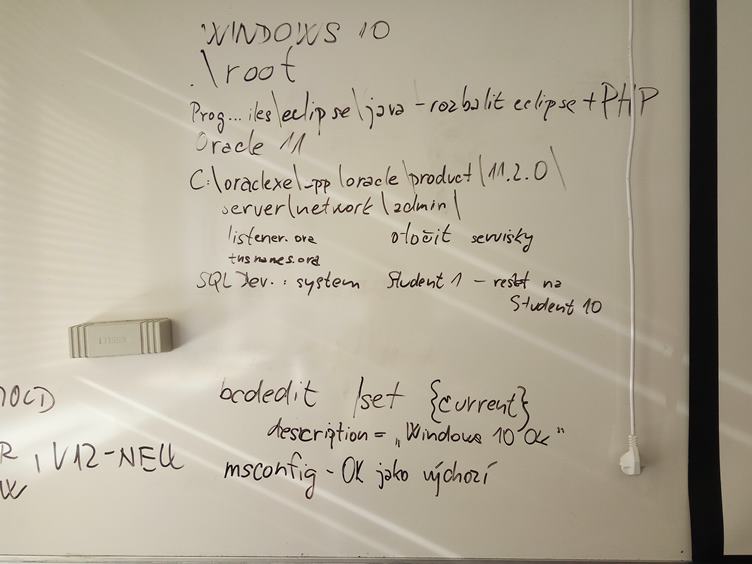 WINDOWS 10
.\root
Prog...iles\eclipse\java - rozbalit eclipse + PHP
Oracle 11
C:\oraclexe\_pp\oracle\product\11.2.0\
server\network\admin\
listener.ora otočit servisky
tnsnames.ora
SQL Dev. : system Student 1 - reset na
Student 10
bcdedit /set {current}
description = „Windows 10 OK"
, V12-NEW
msconfig - OK jako výchozí